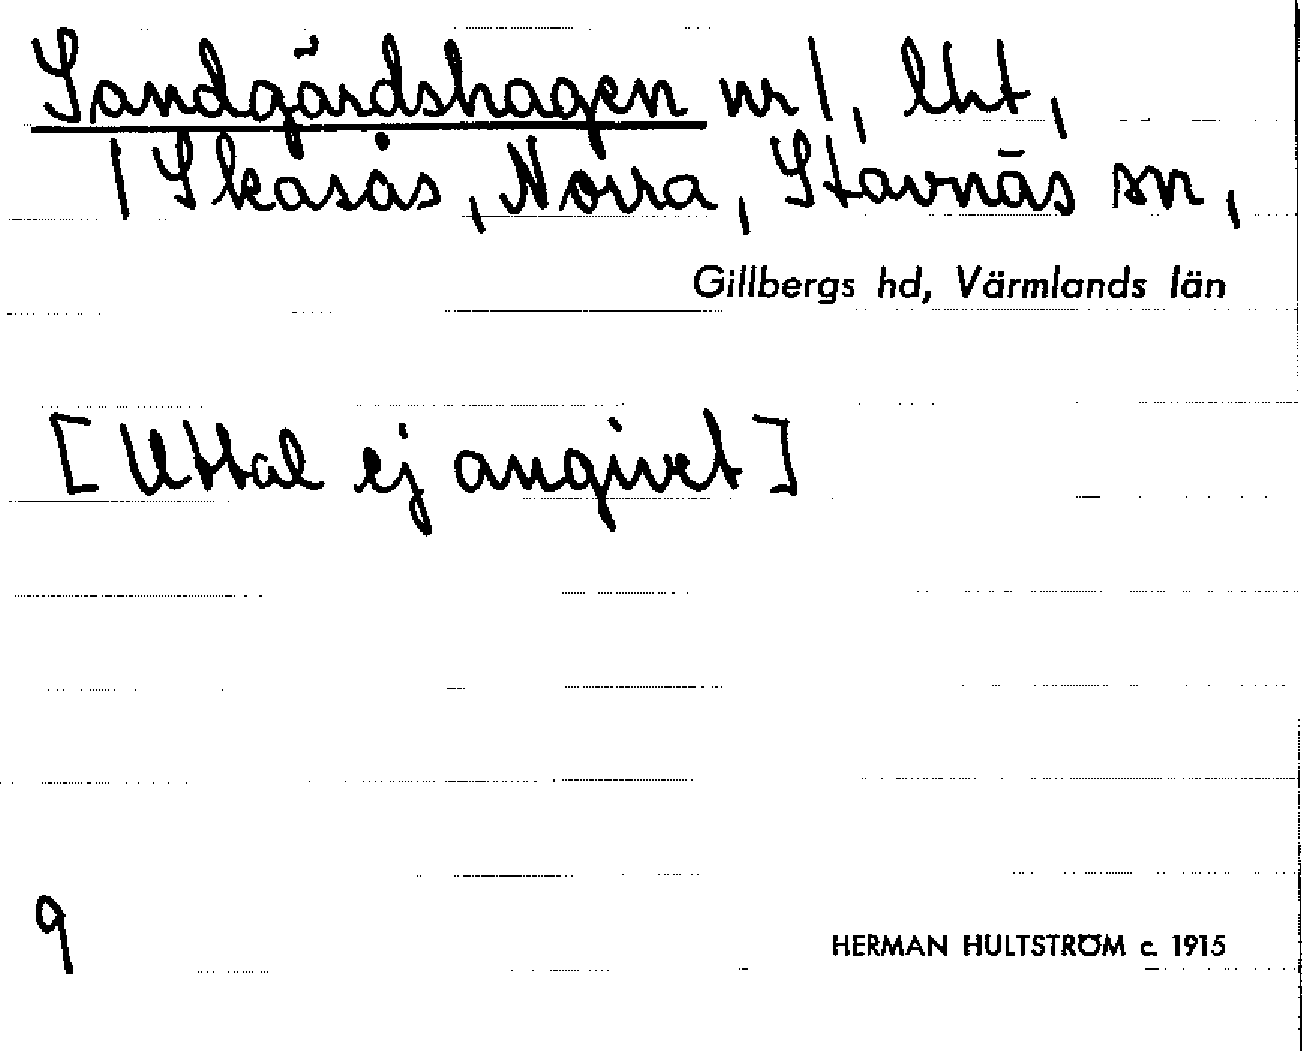 Sandgårdshagen nr 1, lht,
1 Skasås, Norra, Stavnäs sn,
Gillbergs hd, Värmlands län
[Uttal ej angivet]
9
HERMAN HULTSTRÖM c. 1915